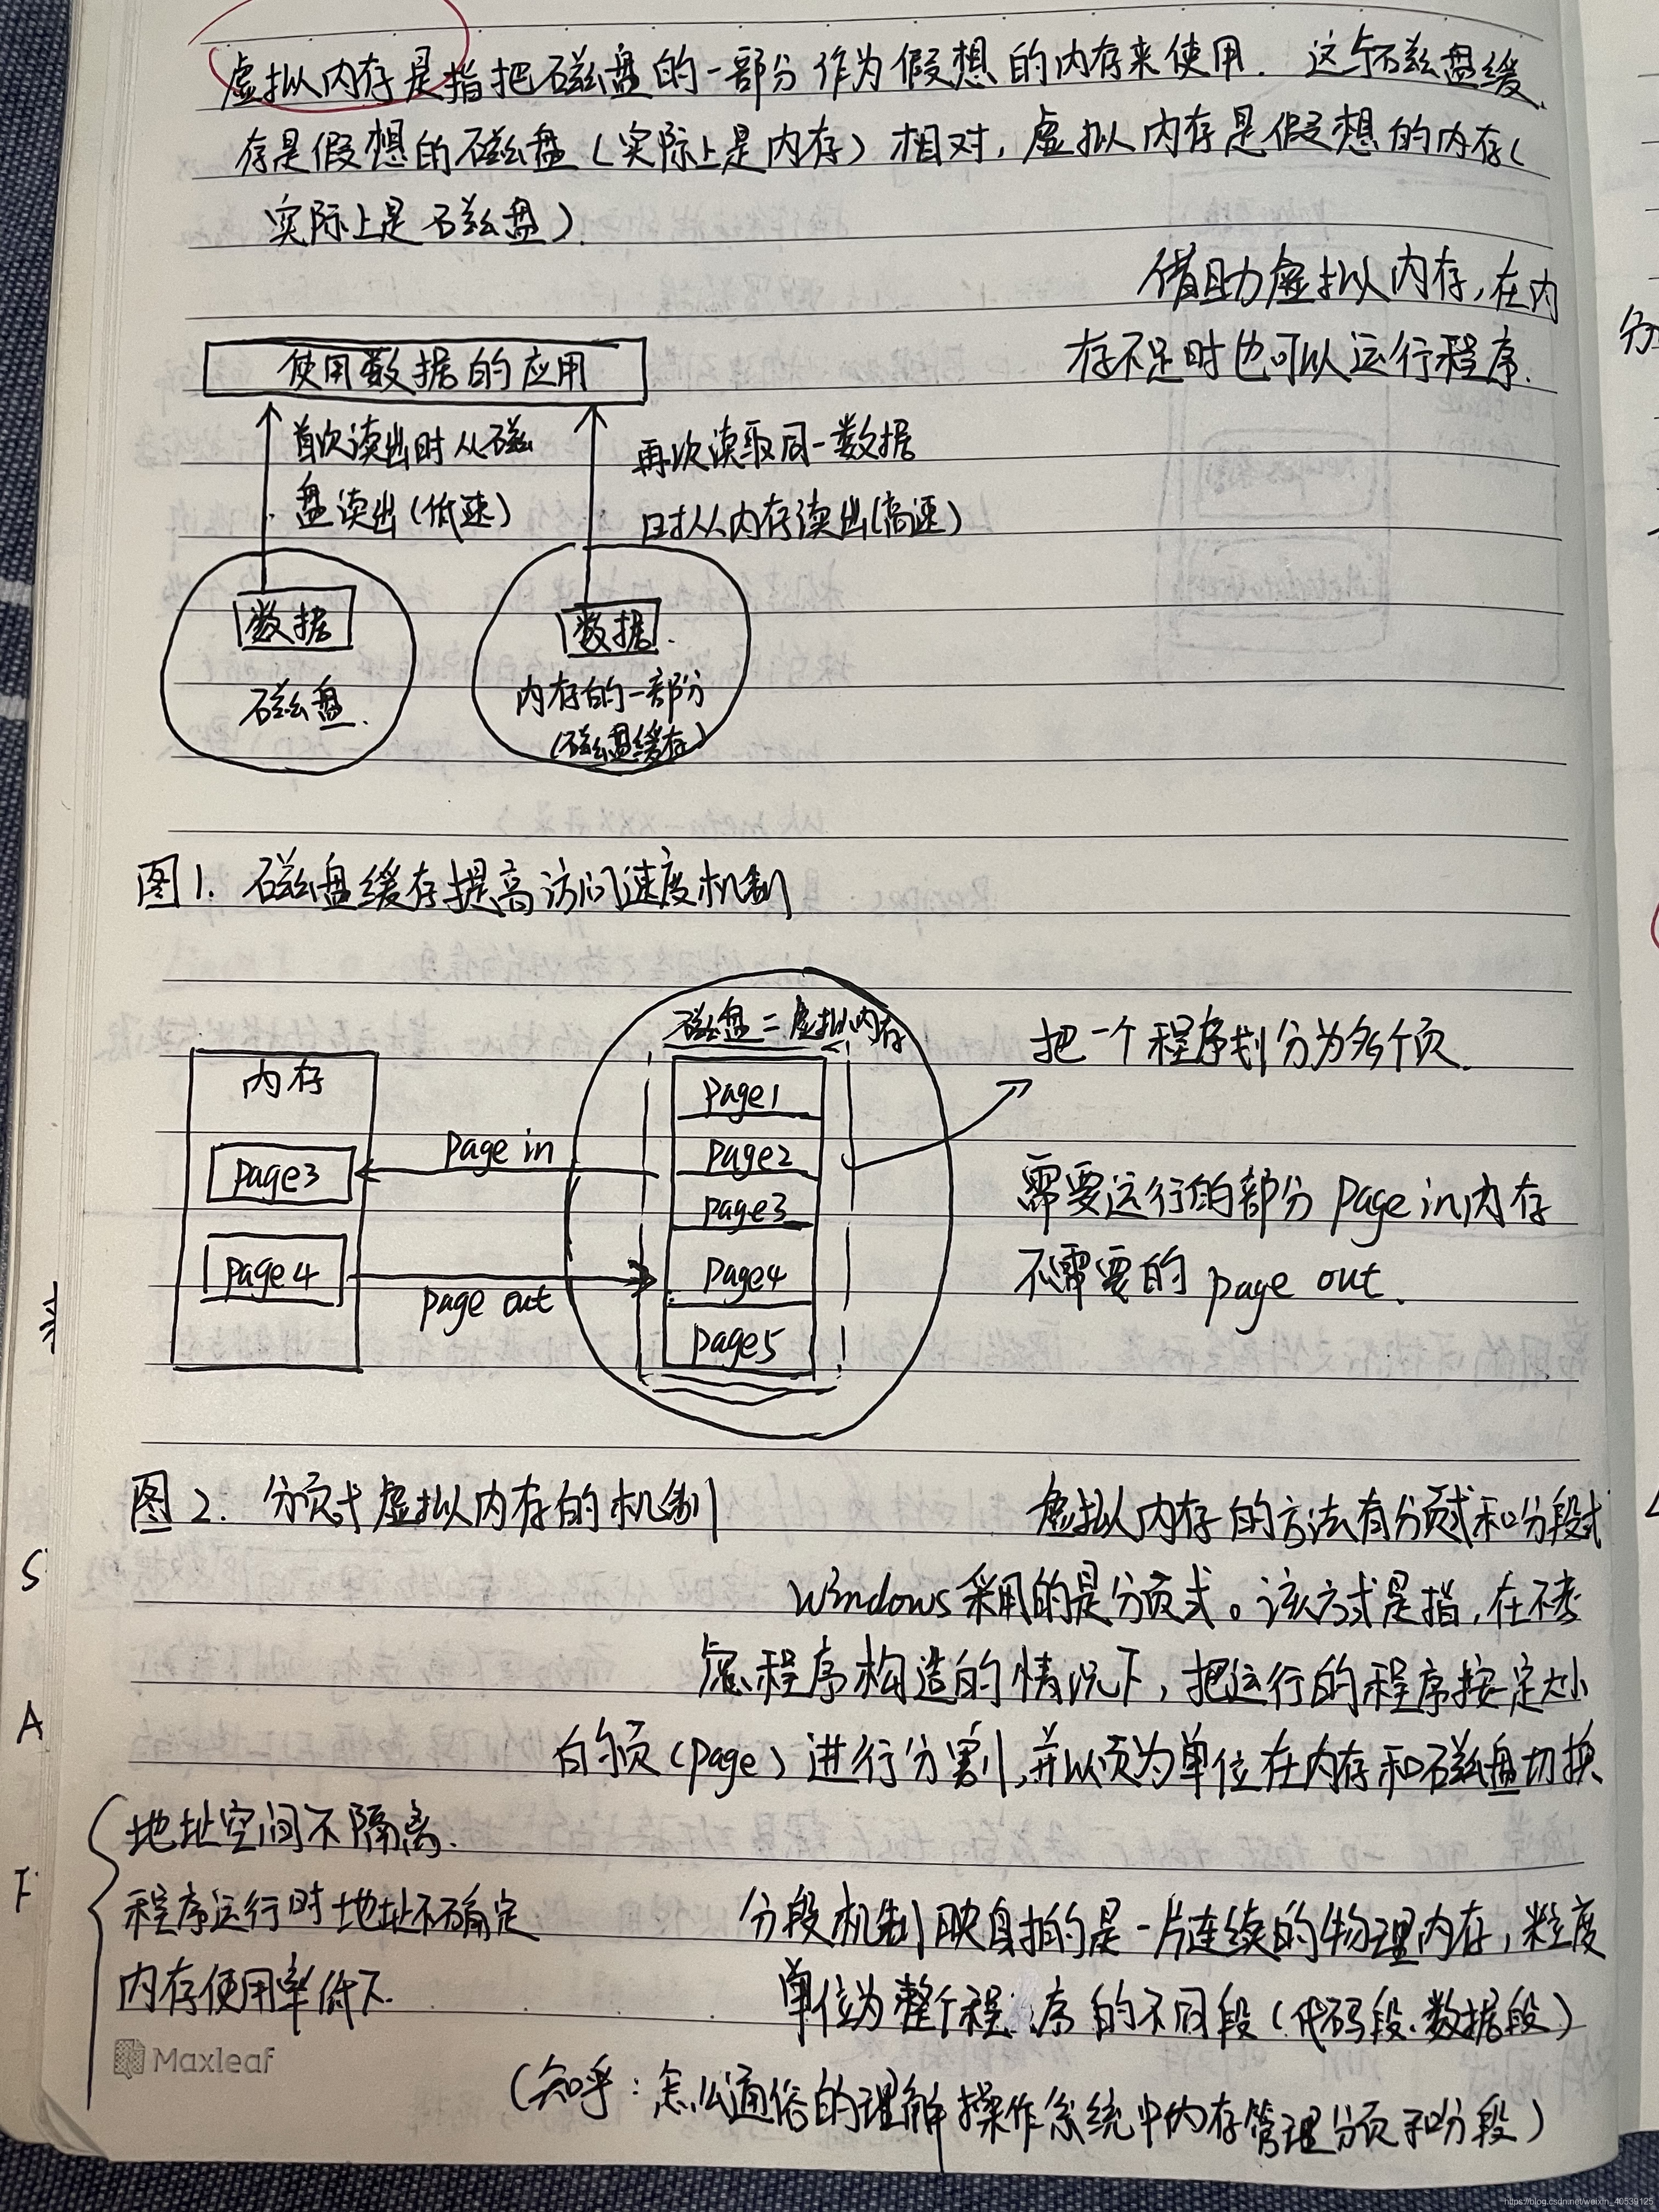 虚拟内存是指把磁盘的一部分作为假想的内存来使用. 这与磁盘缓
存是假想的磁盘(实际上是内存)相对, 虚拟内存是假想的内存(
实际上是磁盘).
借助虚拟内存, 在内
存不足时也可以运行程序.
使用数据的应用
首次读出时从磁
盘读出(低速)
再次读取同一数据
时从内存读出(高速)
数据
磁盘.
数据.
内存的一部分
(磁盘缓存)
图1. 磁盘缓存提高访问速度机制
磁盘=虚拟内存
内存
page1
page2
page3
page4
page5
page3
page4
page in
page out
把一个程序划分为多个页.
需要运行的部分 page in 内存
不需要的 page out.
图2. 分页式虚拟内存的机制
虚拟内存的方法有分页式和分段式
Windows采用的是分页式。该方式是指, 在不考
虑程序构造的情况下, 把运行的程序按一定大小
的页(page)进行分割, 并以页为单位在内存和磁盘切换
地址空间不隔离.
程序运行时地址不确定
内存使用率低下.
分段机制映射的是一片连续的物理内存, 粒度
单位为整个程序的不同段(代码段.数据段)
(知乎: 怎么通俗的理解操作系统中内存管理分页和分段)
Maxleaf
S
A
https://blog.csdn.net/weixin_40539125